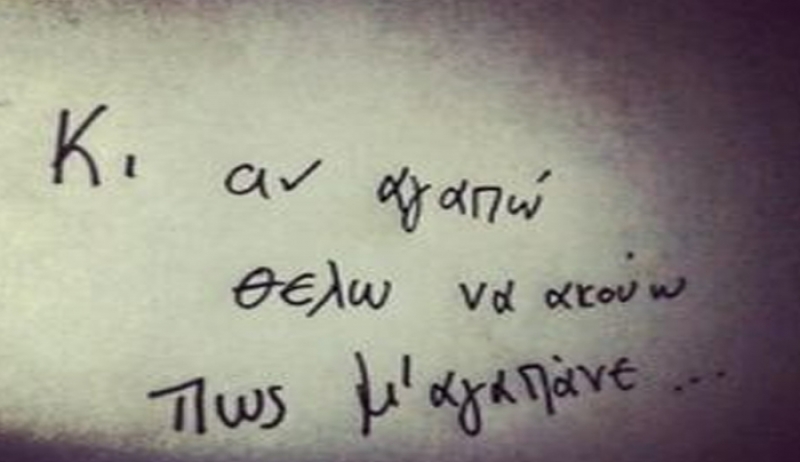 Κι αν αγαπώ
θελω να ακούω
πως μ' αγαπάνε ...